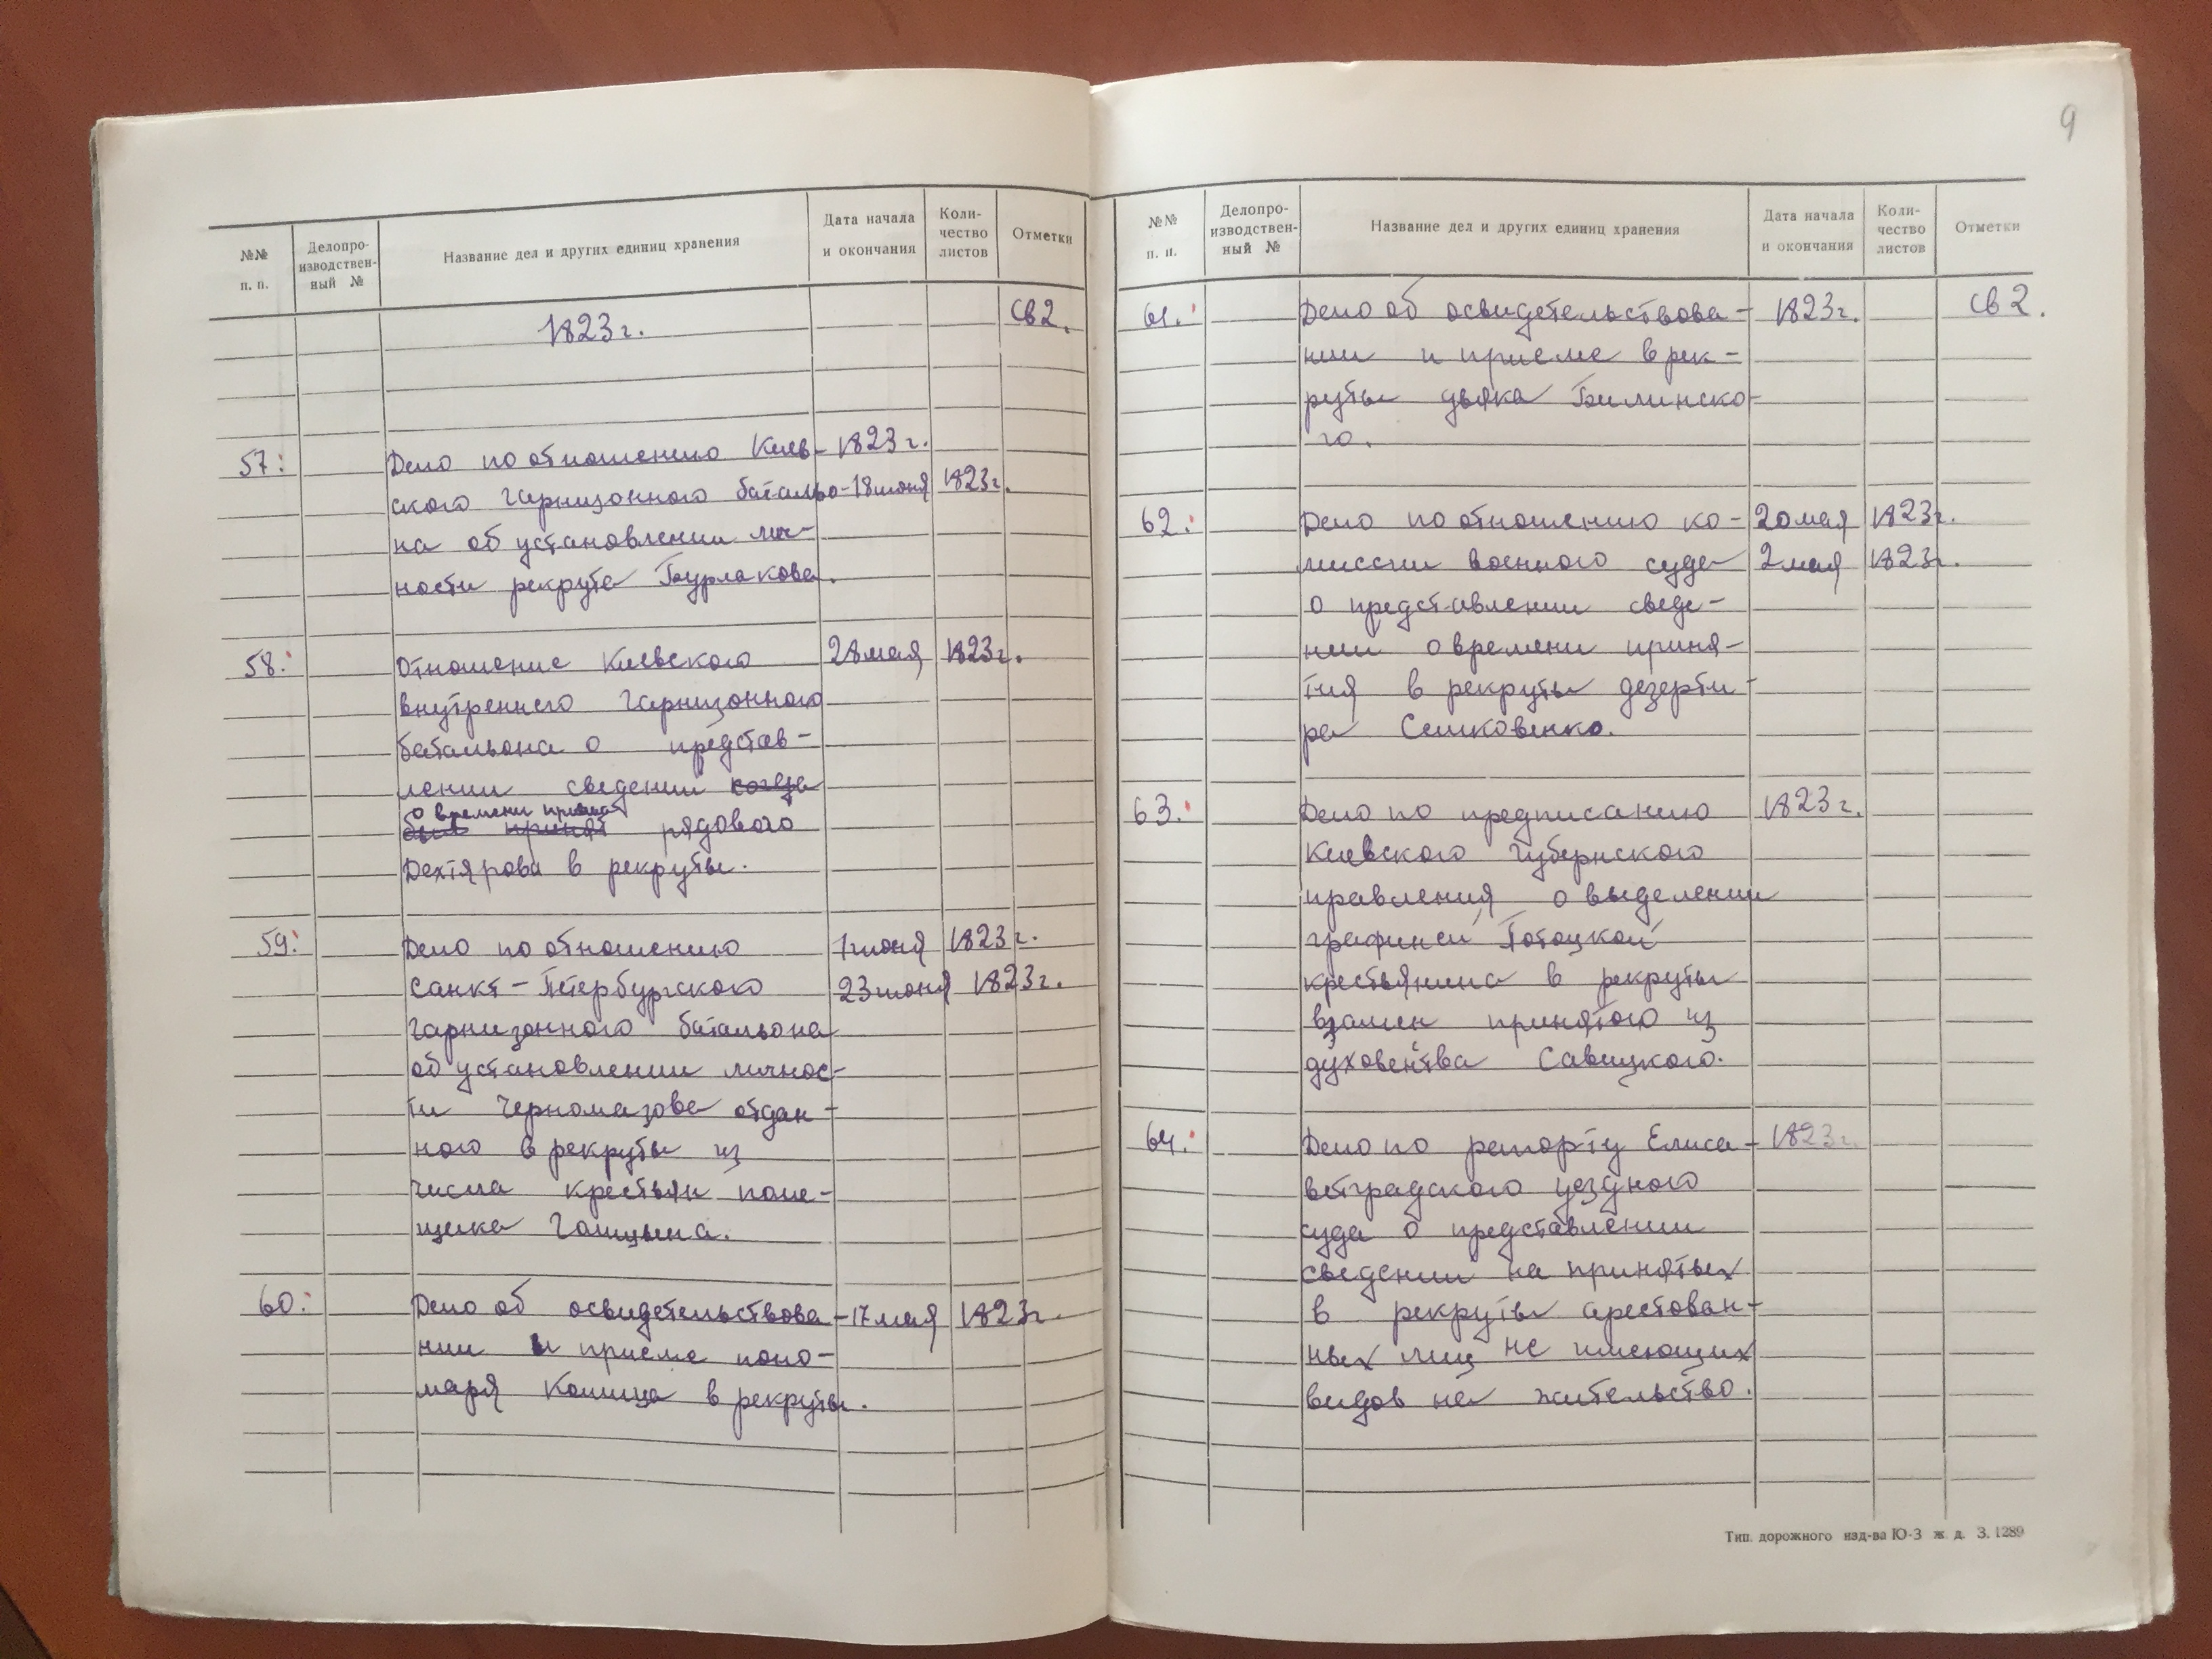 9
№№ п. п.
Делопро-
изводствен-
ный №
Название дел и других единиц хранения
Дата начала
и окончания
Коли-
чество
листов
Отметки
1823 г.
св 2.
57.
Дело по отношению Киев- 1823 г.
ского гарнизонного батальо- 18 июня 1823 г.
на об установлении лич-
ности рекрута Бурлакова.
58.
Отношение Киевского 28 мая 1823 г.
внутреннего гарнизонного
батальона о представ-
лении сведении когда
о времени принят
был принят рядового
Дехтярова в рекруты.
59.
Дело по отношению 1 июня 1823 г.
Санкт-Петербургского 23 июня 1823 г.
гарнизонного батальона
об установлении личнос-
ти Черномазова отдан-
ного в рекруты из
числа крестьян поме-
щика
60.
Дело об освидетельствова- 17 мая 1823 г.
нии и приеме поно-
маря в рекруты.
№№ п. п.
Делопро-
изводствен-
ный №
Название дел и других единиц хранения
Дата начала
и окончания
Коли-
чество
листов
Отметки
61.
Дело об освидетельствова- 1823 г. св 2.
нии и приеме в рек-
руты дьяка Билинско-
го.
62.
Дело по отношению ко- 20 мая 1823 г.
миссии военного суда 2 мая 1823 г.
о представлении сведе-
нии о времени приня-
тия в рекруты дезерти-
ра Сешковенко.
63.
Дело по предписанию 1823 г.
Киевского губернского
правления о выделении
графиней Потоцкой
крестьянина в рекруты
взамен принятого из
духовенства Савицкого.
64.
Дело по рапорту Елиса- 1823 г.
ветградского уездного
суда о представлении
сведении на принятых
в рекруты арестован-
ных лиц не имеющих
видов на жительство.
Тип. дорожного изд-ва Ю-З ж. д. З. 1289